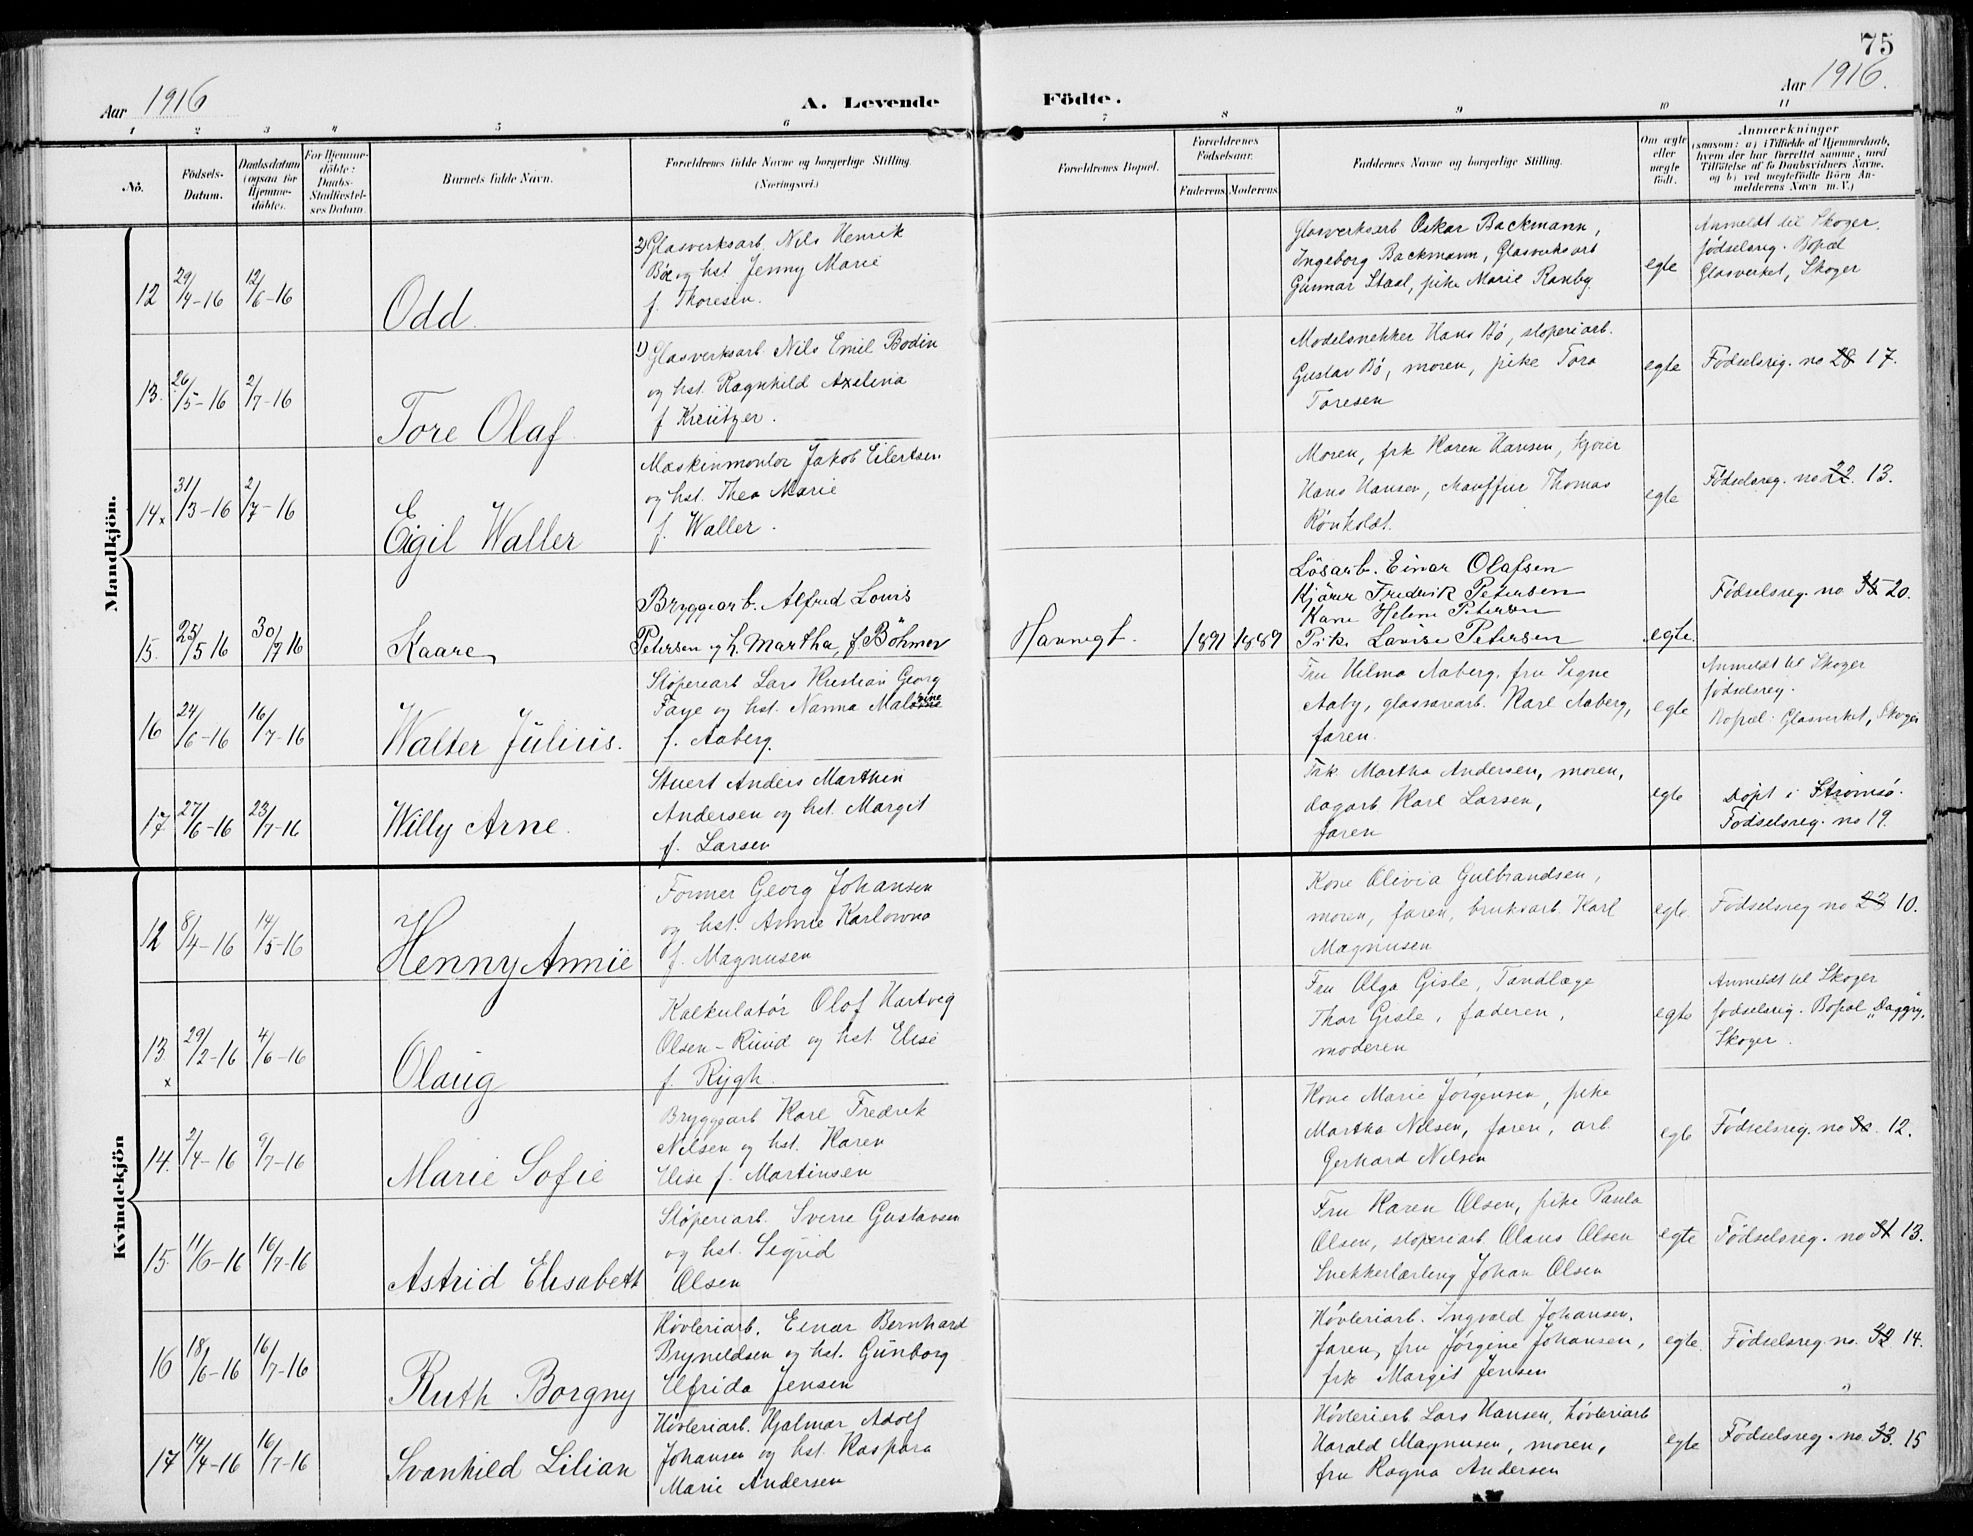 75
Aar 1916
A. Levende
Födte.
Aar 1916.
1 2 3 4 5 6 7 8 9 10 11
No.
Födsels-
Datum.
Daabsdatum
(ogsaa for
Hjemme-
döbte).
For Hjemme-
döbte:
Daabs-
Stadfæstel-
ses Datum.
Barnets fulde Navn.
Forældrenes fulde Navne og borgerlige Stilling.
(Næringsvei.)
Forældrenes Bopæl.
Forældrenes
Födselsaar.
Faderens Moderens
Faddernes Navne og borgerlige Stilling.
Om ægte
eller
uægte
födt.
Anmærkninger
(saasom: a) i Tilfælde af Hjemmedaab,
hvem der har forrettet samme, med
Tilföielse af to Daabsvidners Navne,
og b) ved uægtefödte Börn An-
melderens Navn m. V.)
Mandkjön.
12
29/4-16
12/6-16
Odd
2) Glasverksarb. Nils Henrik
Böe og hst. Jenny Marie
f. Thoresen.
Glasverksarb Oskar Backmann,
Ingeborg Backmann, Glasverksarb
Gunnar Staal, pike Marie Ranby.
egte
Anmeldt til Skoger.
födselsreg. Bopæl
Glasverket, Skoger
13.
26/5-16
2/7-16
Tore Olaf
1) Glasverksarb. Nils Emil Bodin
og hst. Ragnhild Axelina
f. Kreützer.
Modelsnekker Hans Bö, stoperiarb.
Gustav Bö, moren, pike Tora
Toresen
egte
Födselsreg. no 28 17.
14 x
31/3-16
2/7-16
Eigil Waller
Maskinmontör Jakob Eilertsen
og hst. Thea Marie
f. Waller.
Moren, frk Karen Hansen, kjörer
Hans Hansen, chauffur Thomas
Rönholdt.
egte
Födselsreg. no 22. 13.
15.
25/5 16
30/7 16
Kaare
Bryggearb. Alfred Louis
Petersen og h. Martha f. Böhmer
Havnegt.
1891
1889
Lösarb. Einar Olafsen
Kjörer Frederik Petersen
Kone Helene Petersen
Pike Lovise Petersen
egte.
Födselsreg. no 35 20.
16
24/6-16
16/7-16
Walter Julius.
Stöperiarb Lars Kristian Georg
Faye og hst. Nanna
f. Aaberg.
Fru Hilma Aaberg, fru Signe
Aaby, glassarb. Karl Aaberg,
faren.
egte
Anmeldt til Skoger
födselsreg.
Bopæl: Glasverket, Skoger
17
27/6-16
23/7-16
Willy Arne.
Stuert Anders Marthin
Andersen og hst. Margit
f. Larsen
Frk. Martha Andersen, moren,
dagarb Karl Larsen,
faren
egte
Döpt i Strömsö.
Födselsreg. no 19.
Kvindekjön
12
8/4-16
14/5-16
Henny Annie
Former Georg Johansen
og hst. Annie Karlowna
f. Magnusen
Kone Olivia Gulbrandsen,
moren, faren, bruksarb. Karl
Magnusen
egte.
Födselsreg no 23 10.
13
x
29/2-16
4/6-16
Olaug
Kalkulatör Olaf Hartvig
Olsen-Ruud og hst. Elise
f. Rygh.
Fru Olga Gisle, Tandlæge
Thor Gisle, faderen,
moderen
egte
Anmeldt til Skoger
födselsreg. Bopæl „Daggry"
Skoger.
14.
2/4-16
9/7-16
Marie Sofie
Bryggearb Karl Fredrik
Nilsen og hst. Karen
Elise f. Martinsen
Kone Marie Jörgensen, pike
Martha Nilsen, faren, arb.
Gerhard Nilsen
egte
Födselsreg. no 30. 12.
15.
11/6-16
16/7-16
Astrid Elisabeth
Stöperiarb. Sverre Gustavsen
og hst. Sigrid
Olsen
Fru Karen Olsen, pike Paula
Olsen, stöperiarb Olaus Olsen
Snekkerlærling Johan Olsen
egte
Födselsreg. no 31 13.
16
18/6-16
16/7-16
Ruth Borgny
Hövleriarb. Einar Bernhard
Bryneldsen og hst. Günborg
Elfrida Jensen
Hövleriarb. Ingvald Johansen,
faren, fru Jörgine Johansen,
frk Margit Jensen
egte.
Födselsreg. no. 32 14.
17
14/4-16
16/7-16
Svanhild Lilian
Hövleriarb. Hjalmar Adolf
Johansen og hst. Kaspara
Marie Andersen
Hövleriarb Lars Hansen, hövleriarb
Harald Magnusen, moren,
fru Ragna Andersen
egte
Födselsreg. no. 33. 15